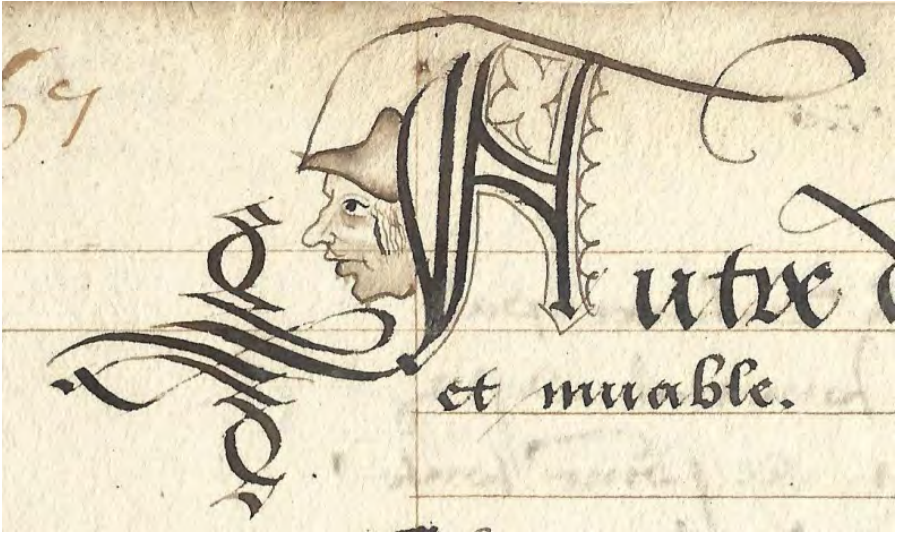 Autre d
et muable.